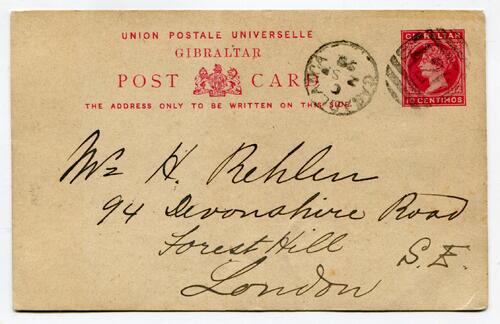 UNION POSTALE UNIVERSELLE
GIBRALTAR
POST CARD
THE ADDRESS ONLY TO BE WRITTEN ON THIS SIDE.
CASABLANCA
GIBRALTAR
10 CENTIMOS
Mr H. Rehlen
94 Devonshire Road
Forest Hill
S.E.
London